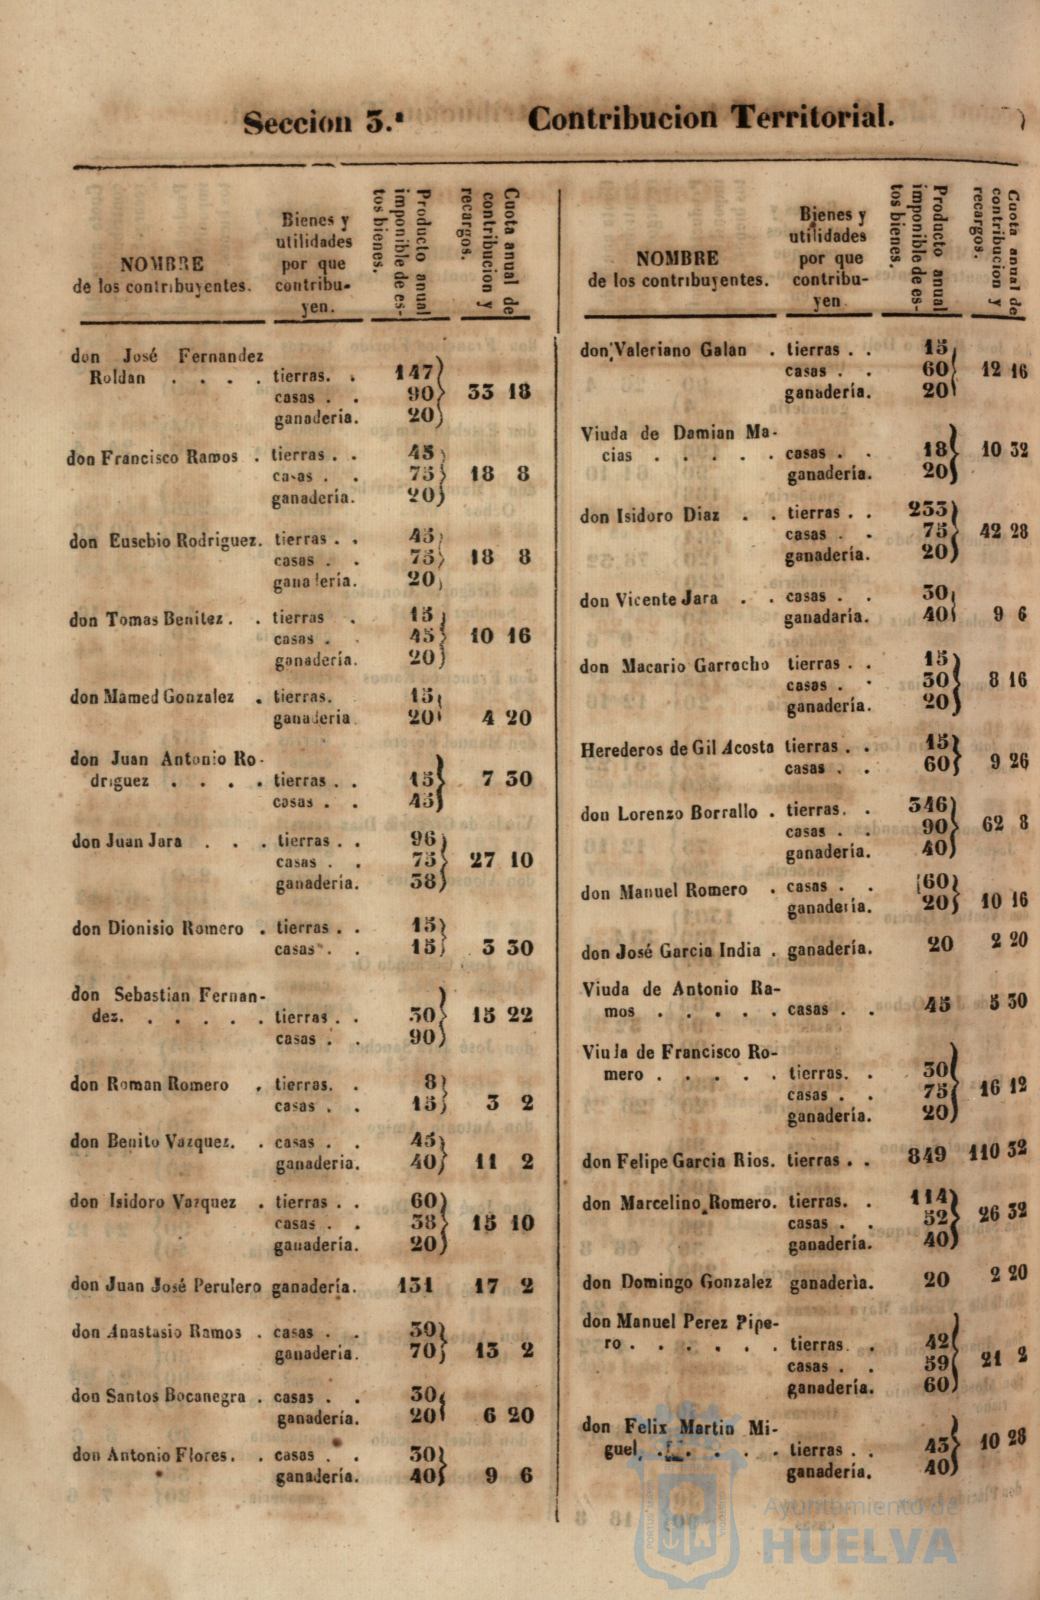 Seccion 3.ª Contribucion Territorial.
NOMBRE
de los contribuyentes.
Bienes y
utilidades
por que
contribu-
yen.
Producto anual
imponible de es-
tos bienes.
Cuota anual de
contribucion y
recargos.
don José Fernandez
Roldan . . . . tierras. . 147
casas . . 90 33 18
ganadería. 20
don Francisco Ramos . tierras . . 45
casas . . 75 18 8
ganadería. 20
don Eusebio Rodriguez. tierras . . 45
casas . . 75 18 8
ganadería. 20
don Tomas Benitez . . tierras . 15
casas . . 45 10 16
ganadería. 20
don Mamed Gonzalez . tierras. 15
ganadería 20 4 20
don Juan Antonio Ro-
driguez . . . . tierras . . 15 7 30
casas . . 45
don Juan Jara . . . tierras . . 96
casas . . 75 27 10
ganadería. 38
don Dionisio Romero . tierras . . 15
casas . . 15 3 30
don Sebastian Fernan-
dez. . . . . . tierras . . 30 15 22
casas . . 90
don Roman Romero . tierras. . 8
casas . . 15 3 2
don Benito Vazquez. . casas . . 45
ganaderia. 40 11 2
don Isidoro Vazquez . tierras . . 60
casas . . 38 15 10
ganadería. 20
don Juan José Perulero ganadería. 131 17 2
don Anastasio Ramos . casas . . 30
ganadería. 70 13 2
don Santos Bocanegra . casas . . 30
ganadería. 20 6 20
don Antonio Flores. . casas . . 30
ganadería. 40 9 6
NOMBRE
de los contribuyentes.
Bienes y
utilidades
por que
contribu-
yen.
Producto anual
imponible de es-
tos bienes.
Cuota anual de
contribucion y
recargos.
don Valeriano Galan . tierras . . 15
casas . . 60 12 16
ganadería. 20
Viuda de Damian Ma-
cias . . . . . casas . . 18 10 32
ganadería. 20
don Isidoro Diaz . . tierras . . 233
casas . . 75 42 28
ganadería. 20
don Vicente Jara . . casas . . 30
ganadaría. 40 9 6
don Macario Garrocho tierras . . 15
casas . . 30 8 16
ganadería. 20
Herederos de Gil Acosta tierras . . 15
casas . . 60 9 26
don Lorenzo Borrallo . tierras. . 346
casas . . 90 62 8
ganadería. 40
don Manuel Romero . casas . . 60
ganadería. 20 10 16
don José Garcia India . ganadería. 20 2 20
Viuda de Antonio Ra-
mos . . . . . casas . . 45 5 30
Viuda de Francisco Ro-
mero . . . . . tierras. . 30
casas . . 75 16 12
ganadería. 20
don Felipe Garcia Rios. tierras . . 849 110 32
don Marcelino Romero. tierras. . 114
casas . . 52 26 32
ganadería. 40
don Domingo Gonzalez ganadería. 20 2 20
don Manuel Perez Pipe-
ro . . . . . . tierras. . 42
casas . . 59 21 2
ganadería. 60
don Felix Martin Mi-
guel, . . . . . tierras . . 43 10 28
ganadería. 40
Ayuntamiento de
HUELVA